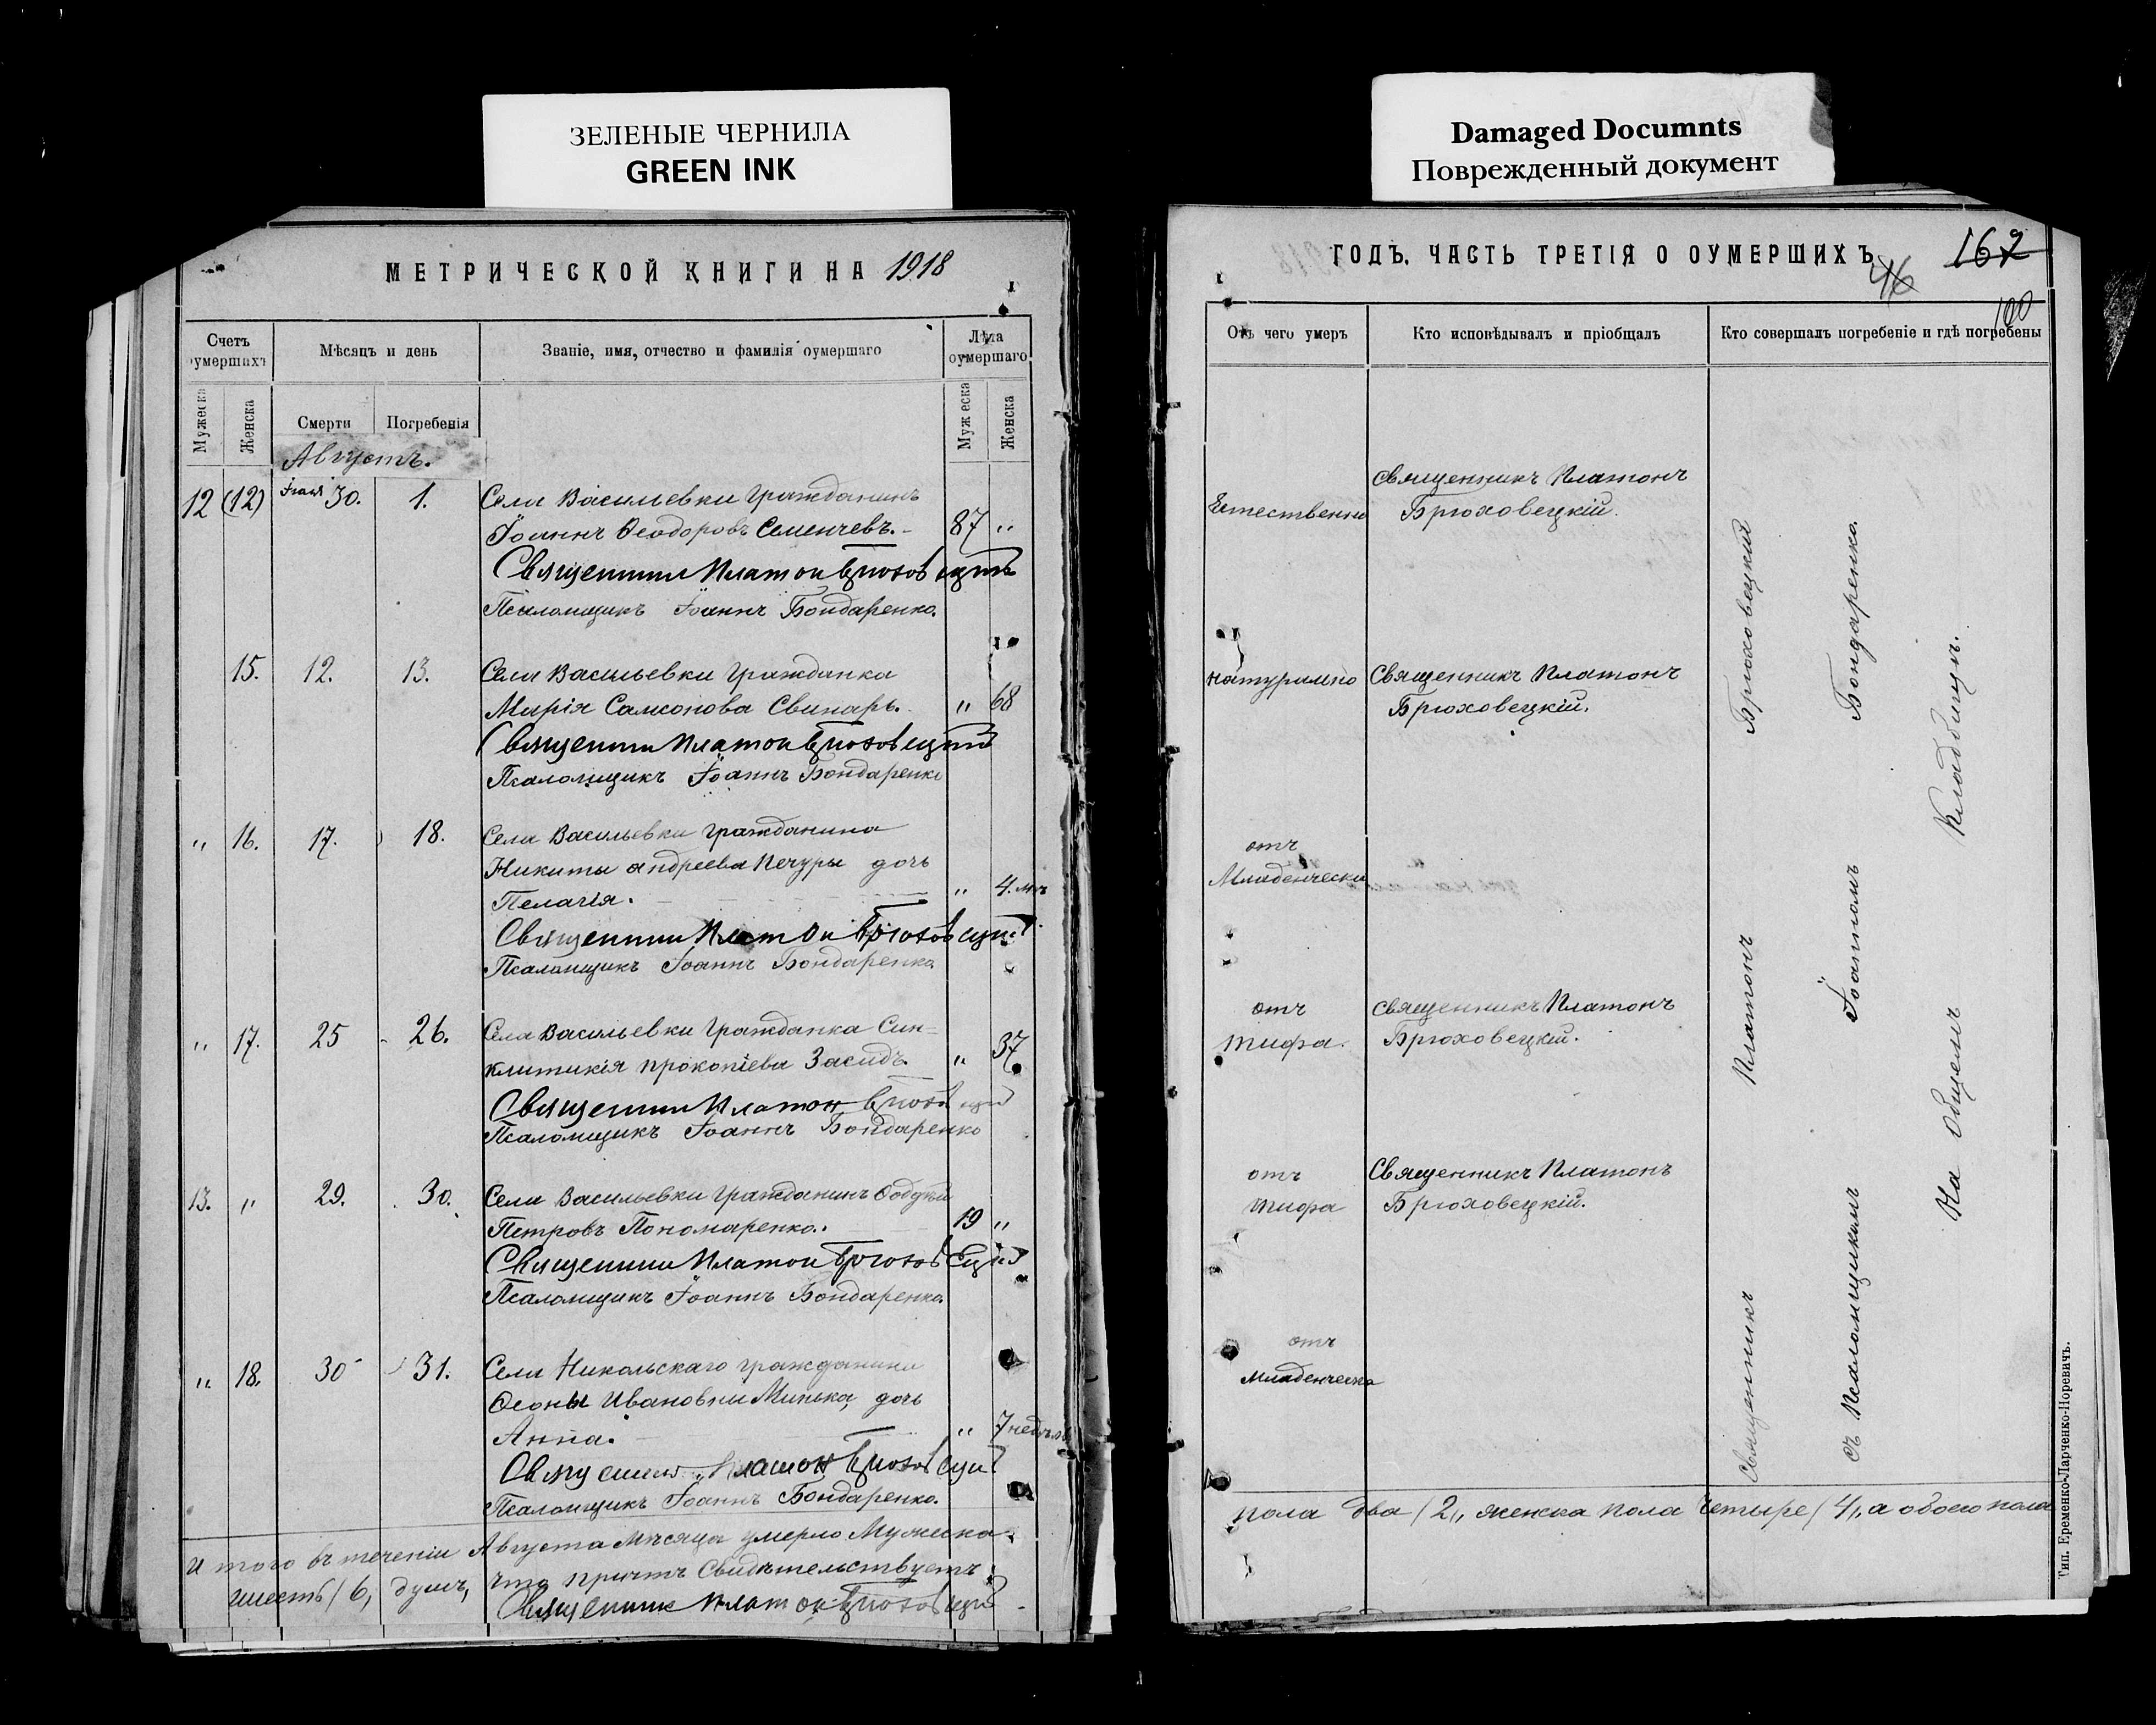 ЗЕЛЕНЫЕ ЧЕРНИЛА
GREEN INK
МЕТРИЧЕСКОЙ КНИГИ НА 1918
Счетъ оумершихъ
Мѣсяцъ и день
Званіе, имя, отчество и фамилія оумершаго
Лѣта оумершаго
Мужеска
Женска
Смерти
Погребенія
Мужеска
Женска
Августъ.
12 (12) 30. 1. Села Васильевки гражданинъ
Іоаннъ Ѳеодоровъ Семенчевъ. 87 "
Священник Платон Брюховецкій
Псаломщикъ Іоаннъ Бондаренко.
15. 12. 13. Села Васильевки гражданка
Марія Самсонова Свинарь. " 68
Священник Платон Брюховецкій
Псаломщикъ Іоаннъ Бондаренко
" 16. 17. 18. Села Васильевки гражданина
Никиты Андреева Печуры дочь
Пелагія. " 4. мъ
Священник Платон Брюховецкій
Псаломщикъ Іоаннъ Бондаренко
" 17. 25 26. Села Васильевки гражданка Син=
клитикія Прокопіева Засидъ. " 37
Священник Платон Брюховецкій
Псаломщикъ Іоаннъ Бондаренко
13. " 29. 30. Села Васильевки гражданинъ
Петровъ Пономаренко. 19 "
Священник Платон Брюховецкій
Псаломщикъ Іоаннъ Бондаренко.
" 18. 30 31. Села Никольскаго гражданина
Ивановны Минька, дочь
Анна. " 7 нед
Священник Платон Брюховецкій
Псаломщикъ Іоаннъ Бондаренко.
И того въ теченіи Августа мѣсяца умерло Мужеска
шесть (6, душъ, что причтъ свидѣтельствуетъ:
Священник Платон Брюховецкій
Damaged Documnts
Поврежденный документ
ГОДЪ. ЧАСТЬ ТРЕТІЯ О ОУМЕРШИХЪ
46
162
100
Отъ чего умеръ
Кто исповѣдывалъ и пріобщалъ
Кто совершалъ погребеніе и гдѣ погребены
Естественно
Священникъ Платонъ
Брюховецкій.
натурально Священникъ Платонъ
Брюховецкій.
отъ
Младенческа
отъ Священникъ Платонъ
тифа. Брюховецкій.
отъ Священникъ Платонъ
тифа Брюховецкій.
отъ
младенческа
Священникъ Платонъ Брюховецкій
съ Псаломщикомъ Іоанномъ Бондаренко.
На общемъ Кладбищѣ.
пола два (2,, женска пола четыре (4,, а обоего пола
Тип. Еременко-Ларченко-Норевичъ.